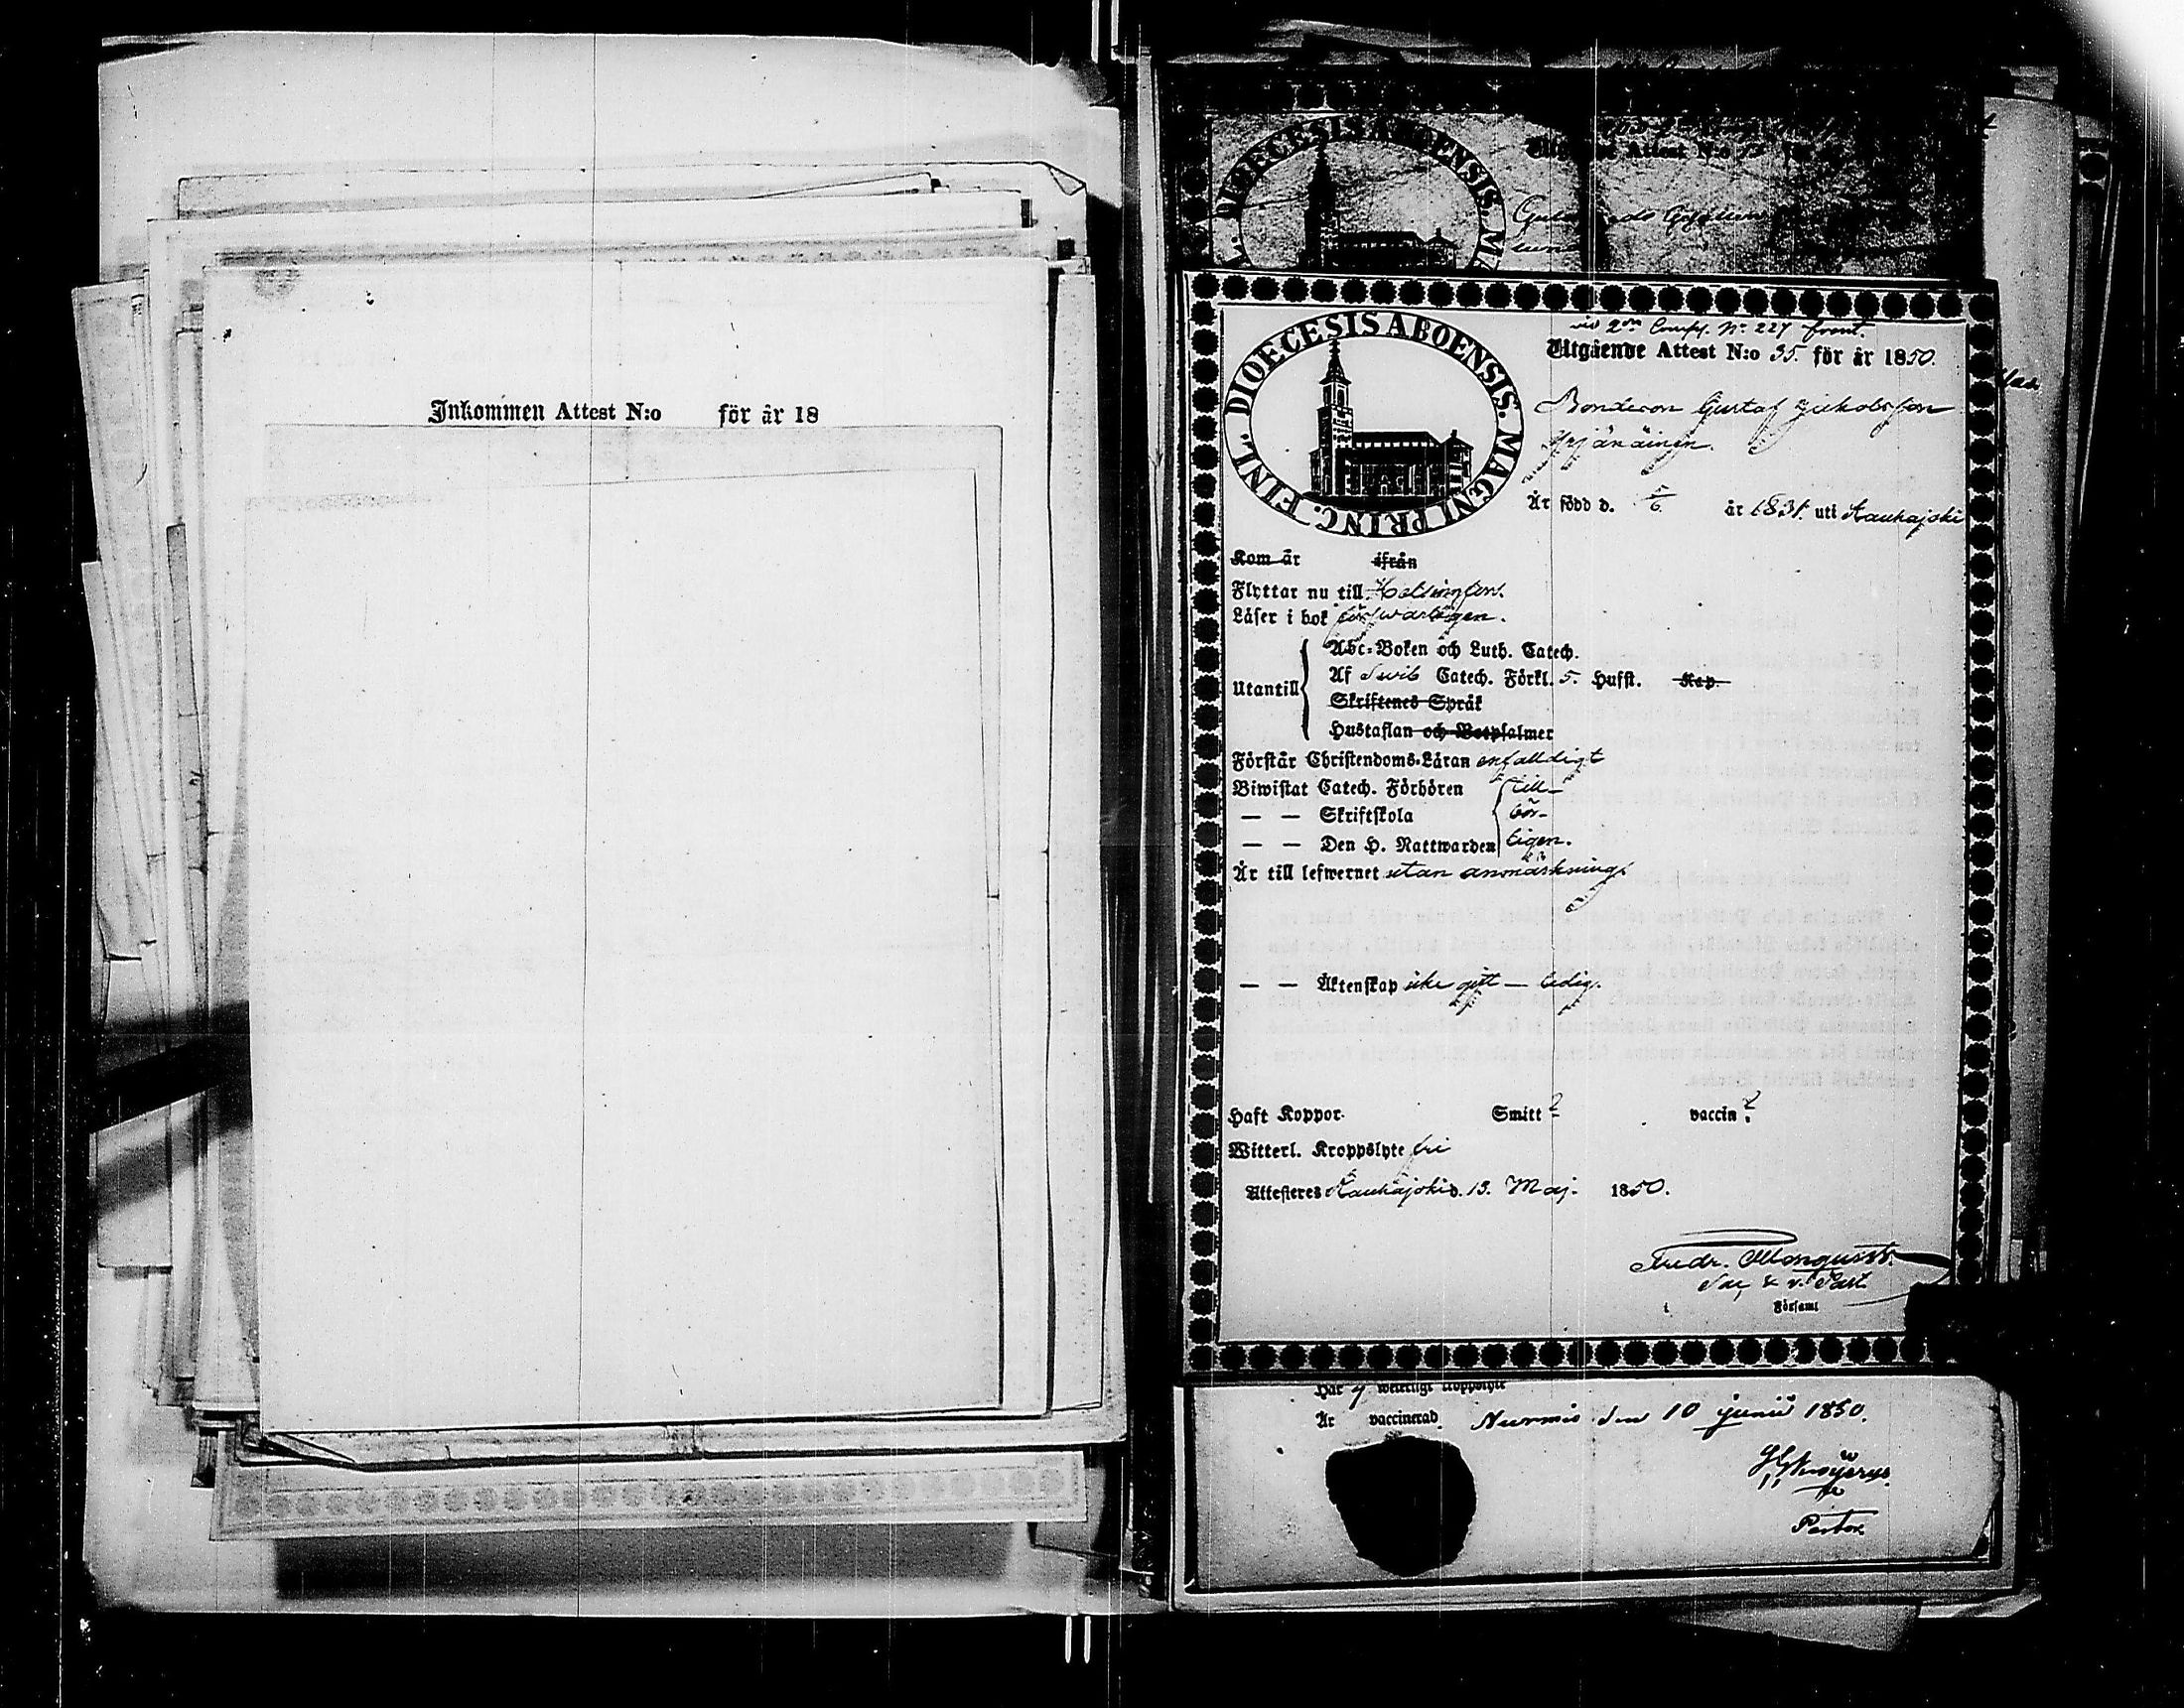 Inkommen Attest N:o för år 18
DIOECESIS ABOENSIS. MAGNI PRINC. FINL.
Attest N:o
DIOECESIS ABOENSIS. MAGNI PRINC. FINL.
vid 2dra Comp. No 227 front.
Utgående Attest N:o 35. för år 1850.
Bondeson Gustaf Jakobsson
Yrjänäinen.
Är född d. 6. år 1831. uti Kauhajoki
Kom år ifrån
Flyttar nu till Helsingfors.
Läser i bok försvarligen.
Utantill
Abc-Boken och Luth. Catech.
Af Svib Catech. Förkl. 5. Hufst. Kap.
Skriftenes Språk
Hustaflan och Botpsalmer
Förstår Christendoms-Läran enfalldigt
Biwistat Catech. Förhören till-
— — Skriftskola bör-
— — Den H. Nattwarden ligen.
Är till lefwernet utan anmärkning.
— — Äktenskap icke gift — ledig.
Haft Koppor. Smitt ? vaccin ?
Witterl. Kroppslyte fri
Attesteres Kauhajoki d. 13. Maj. 1850.
Fredr. Monqvist.
Sac. & v. Past
i Församl
Har weterligt kroppslyte
Är vaccinerad Nurmis den 10 junii 1850.
Pastor